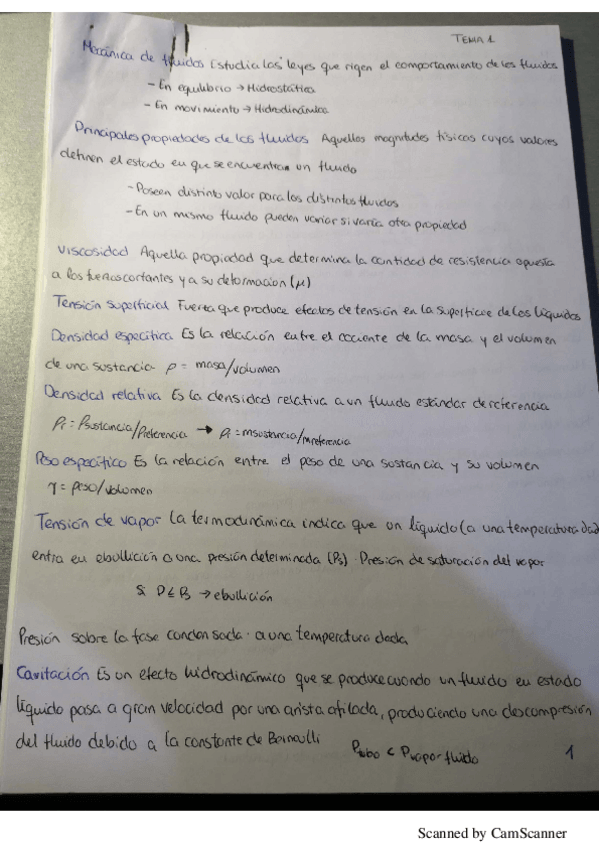 TEMA 1
Mecánica de fluidos Estudia las leyes que rigen el comportamiento de los fluidos
- En equilibrio → Hidrostática
- En movimiento → Hidrodinámica
Principales propiedades de los fluidos Aquellas magnitudes físicas cuyos valores
definen el estado en que se encuentran un fluido
- Poseen distinto valor para los distintos fluidos
- En un mismo fluido pueden variar si varía otra propiedad
Viscosidad Aquella propiedad que determina la cantidad de resistencia opuesta
a las fuerzas cortantes y a su deformación (μ)
Tensión superficial Fuerza que produce efectos de tensión en la superficie de los líquidos
Densidad específica Es la relación entre el cociente de la masa y el volumen
de una sustancia ρ = masa/volumen
Densidad relativa Es la densidad relativa a un fluido estándar de referencia
ρr = ρsustancia/ρreferencia → ρr = msustancia/mreferencia
Peso específico Es la relación entre el peso de una sustancia y su volumen
γ = peso/volumen
Tensión de vapor La termodinámica indica que un líquido (a una temperatura dad
entra en ebullición a una presión determinada (Ps) · Presión de saturación del vapor
Si P ≤ Ps → ebullición
Presión sobre la fase condensada · a una temperatura dada
Cavitación Es un efecto hidrodinámico que se produce cuando un fluido en estado
líquido pasa a gran velocidad por una arista afilada, produciendo una descompresión
del fluido debido a la constante de Bernoulli
Ptubo < Pvapor fluido
1
Scanned by CamScanner